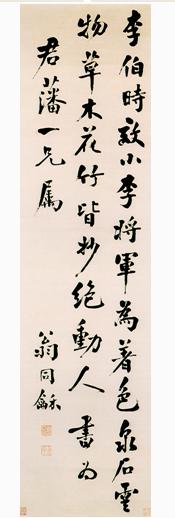 李伯時效小李將軍為著色泉石雲
物草木花竹皆抄絶動人書為
君藩一兄屬
翁同龢